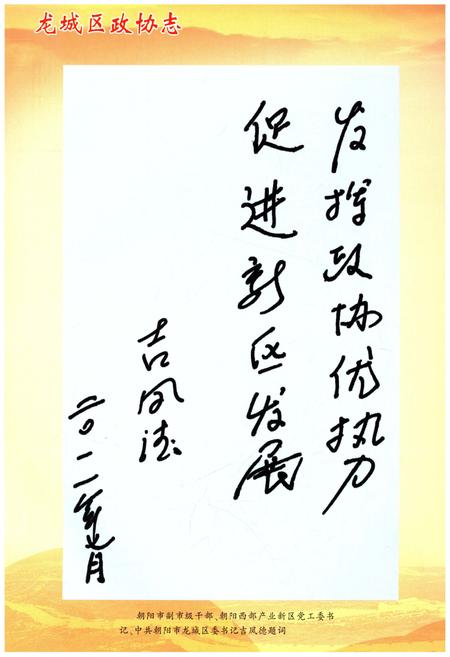 龙城区政协志
发挥政协优势
促进新区发展
吉凤德
二〇一一年七月
朝阳市副市级干部、朝阳西部产业新区党工委书
记、中共朝阳市龙城区委书记吉凤德题词